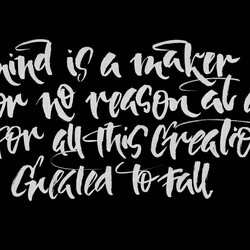 mind is a maker
or no reason at a
for all this Creatio
Created to Fall